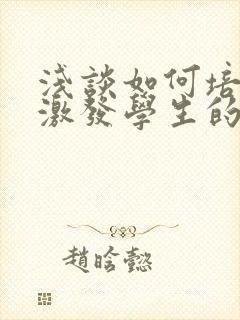 淺談如何培
激發學生的
趙晗懿